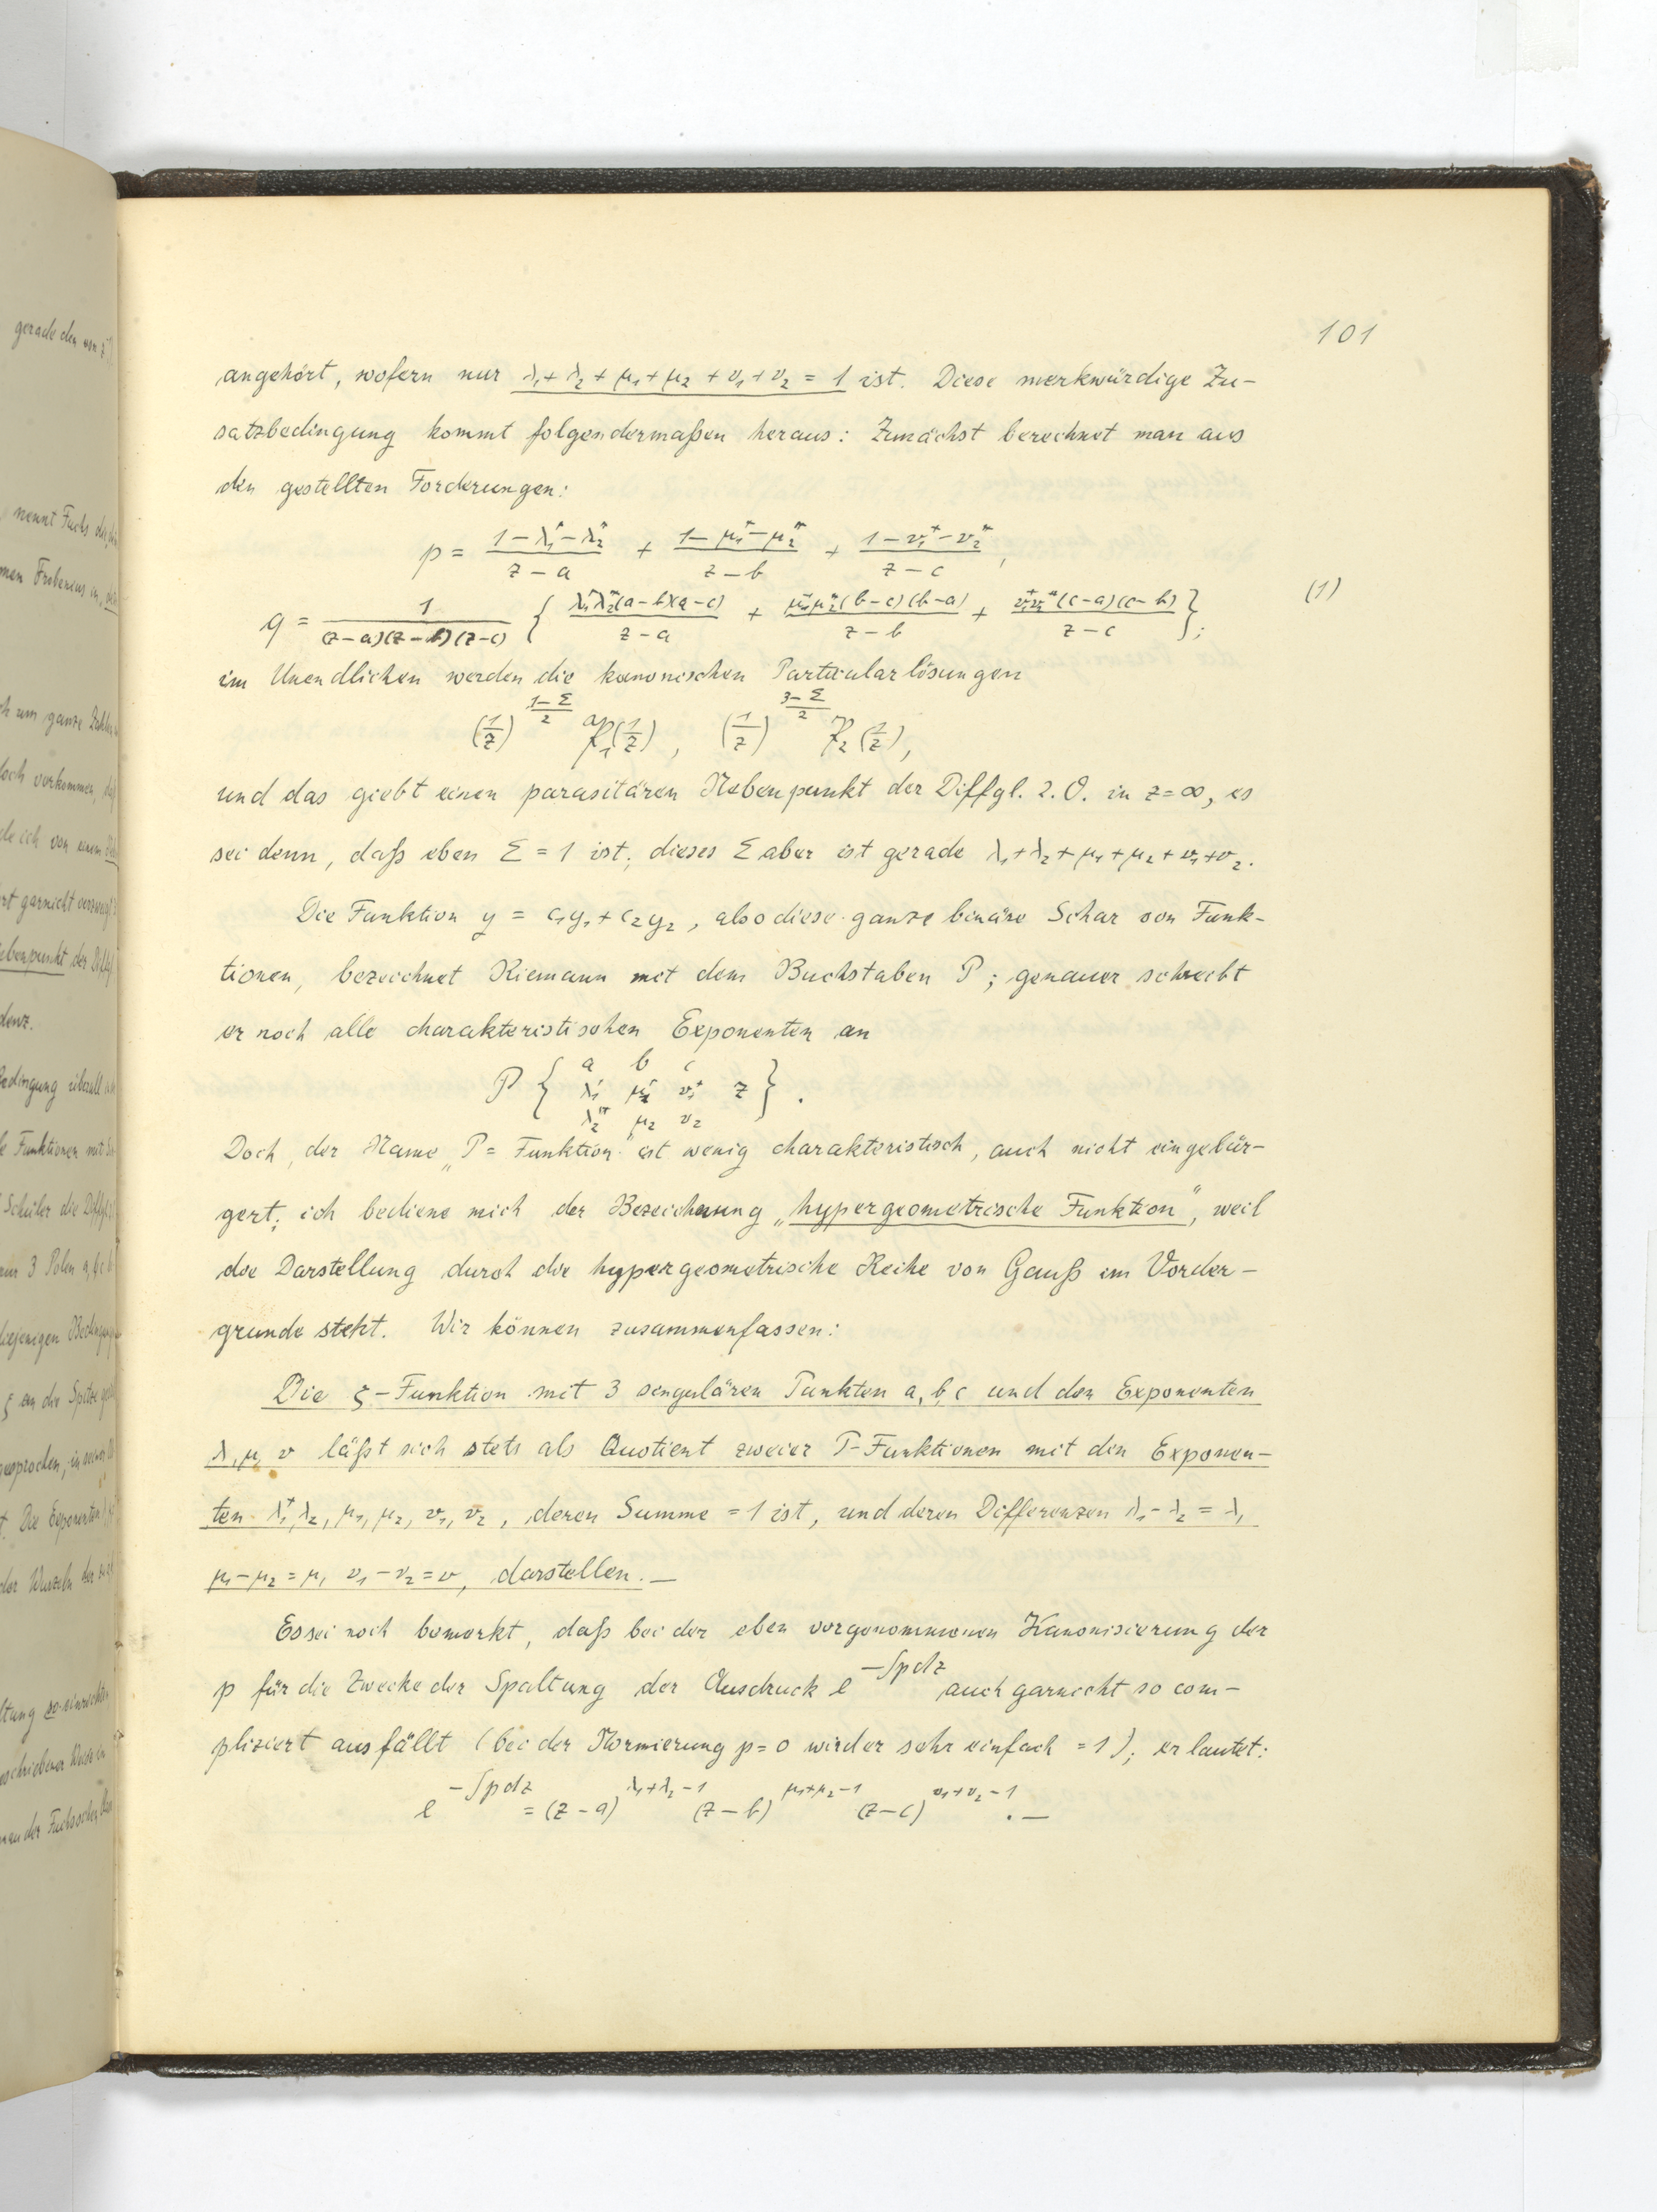 101
angehört, wofern nur λ₁ + λ₂ + μ₁ + μ₂ + ν₁ + ν₂ = 1 ist. Diese merkwürdige Zu-
satzbedingung kommt folgendermaßen heraus: Zunächst berechnet man aus
den gestellten Forderungen:
p = (1 - λ₁ - λ₂)/(z - a) + (1 - μ₁ - μ₂)/(z - b) + (1 - ν₁ - ν₂)/(z - c),
q = 1/((z-a)(z-b)(z-c)) { λ₁λ₂(a-b)(a-c)/(z-a) + μ₁μ₂(b-c)(b-a)/(z-b) + ν₁ν₂(c-a)(c-b)/(z-c) }; (1)
im Unendlichen werden die kanonischen Particularlösungen
(1/z)^((1-Σ)/2) 𝔓₁(1/z), (1/z)^((3-Σ)/2) 𝔓₂(1/z),
und das giebt einen parasitären Nebenpunkt der Diffgl. 2. O. in z = ∞, es
sei denn, daß eben Σ = 1 ist; dieses Σ aber ist gerade λ₁ + λ₂ + μ₁ + μ₂ + ν₁ + ν₂.
Die Funktion y = c₁y₁ + c₂y₂, also diese ganze binäre Schar von Funk-
tionen, bezeichnet Riemann mit dem Buchstaben P; genauer schreibt
er noch alle charakteristischen Exponenten an
a b c
P { λ₁ μ₁ ν₁ z } .
λ₂ μ₂ ν₂
Doch, der Name „P = Funktion" ist wenig charakteristisch, auch nicht eingebür-
gert; ich bediene mich der Bezeichnung „hypergeometrische Funktion", weil
die Darstellung durch die hypergeometrische Reihe von Gauß im Vorder-
grunde steht. Wir können zusammenfassen:
Die ζ-Funktion mit 3 singulären Punkten a, b, c und den Exponenten
λ, μ, ν läßt sich stets als Quotient zweier P-Funktionen mit den Exponen-
ten λ₁, λ₂, μ₁, μ₂, ν₁, ν₂, deren Summe = 1 ist, und deren Differenzen λ₁ - λ₂ = λ,
μ₁ - μ₂ = μ, ν₁ - ν₂ = ν, darstellen. —
Es sei noch bemerkt, daß bei der eben vorgenommenen Kanonisierung der
p für die Zwecke der Spaltung der Ausdruck e^(-∫pdz) auch garnicht so com-
pliziert ausfällt (bei der Normierung p = 0 wird er sehr einfach = 1); er lautet:
e^(-∫pdz) = (z-a)^(λ₁+λ₂-1) (z-b)^(μ₁+μ₂-1) (z-c)^(ν₁+ν₂-1) . —